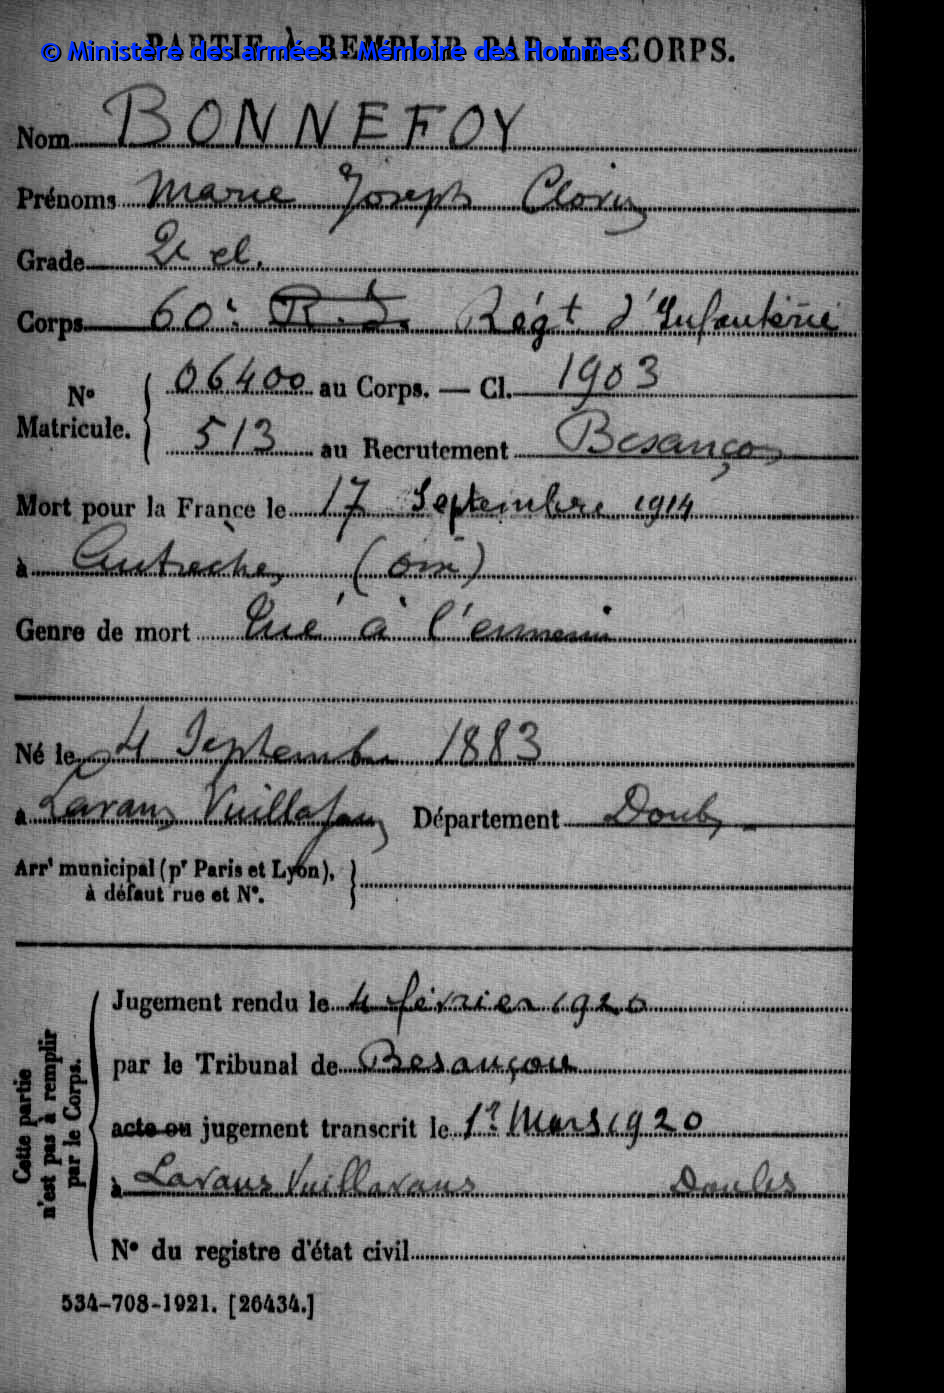 PARTIE À REMPLIR PAR LE CORPS.
© Ministère des armées - Mémoire des Hommes
Nom BONNEFOY
Prénoms Marie Joseph Clovis
Grade 2e cl.
Corps 60e R. I. Régt d'Infanterie
N° Matricule. 06400 au Corps. — Cl. 1903
513 au Recrutement Besançon
Mort pour la France le 17 Septembre 1914
à Autrèches (Oise)
Genre de mort Tué à l'ennemi
Né le 4 Septembre 1883
à Lavans Vuillafans Département Doubs
Arrt municipal (pr Paris et Lyon),
à défaut rue et N°.
Cette partie n'est pas à remplir par le Corps.
Jugement rendu le 4 février 1920
par le Tribunal de Besançon
acte ou jugement transcrit le 1er Mars 1920
à Lavans Vuillafans Doubs
N° du registre d'état civil
534-708-1921. [26434.]